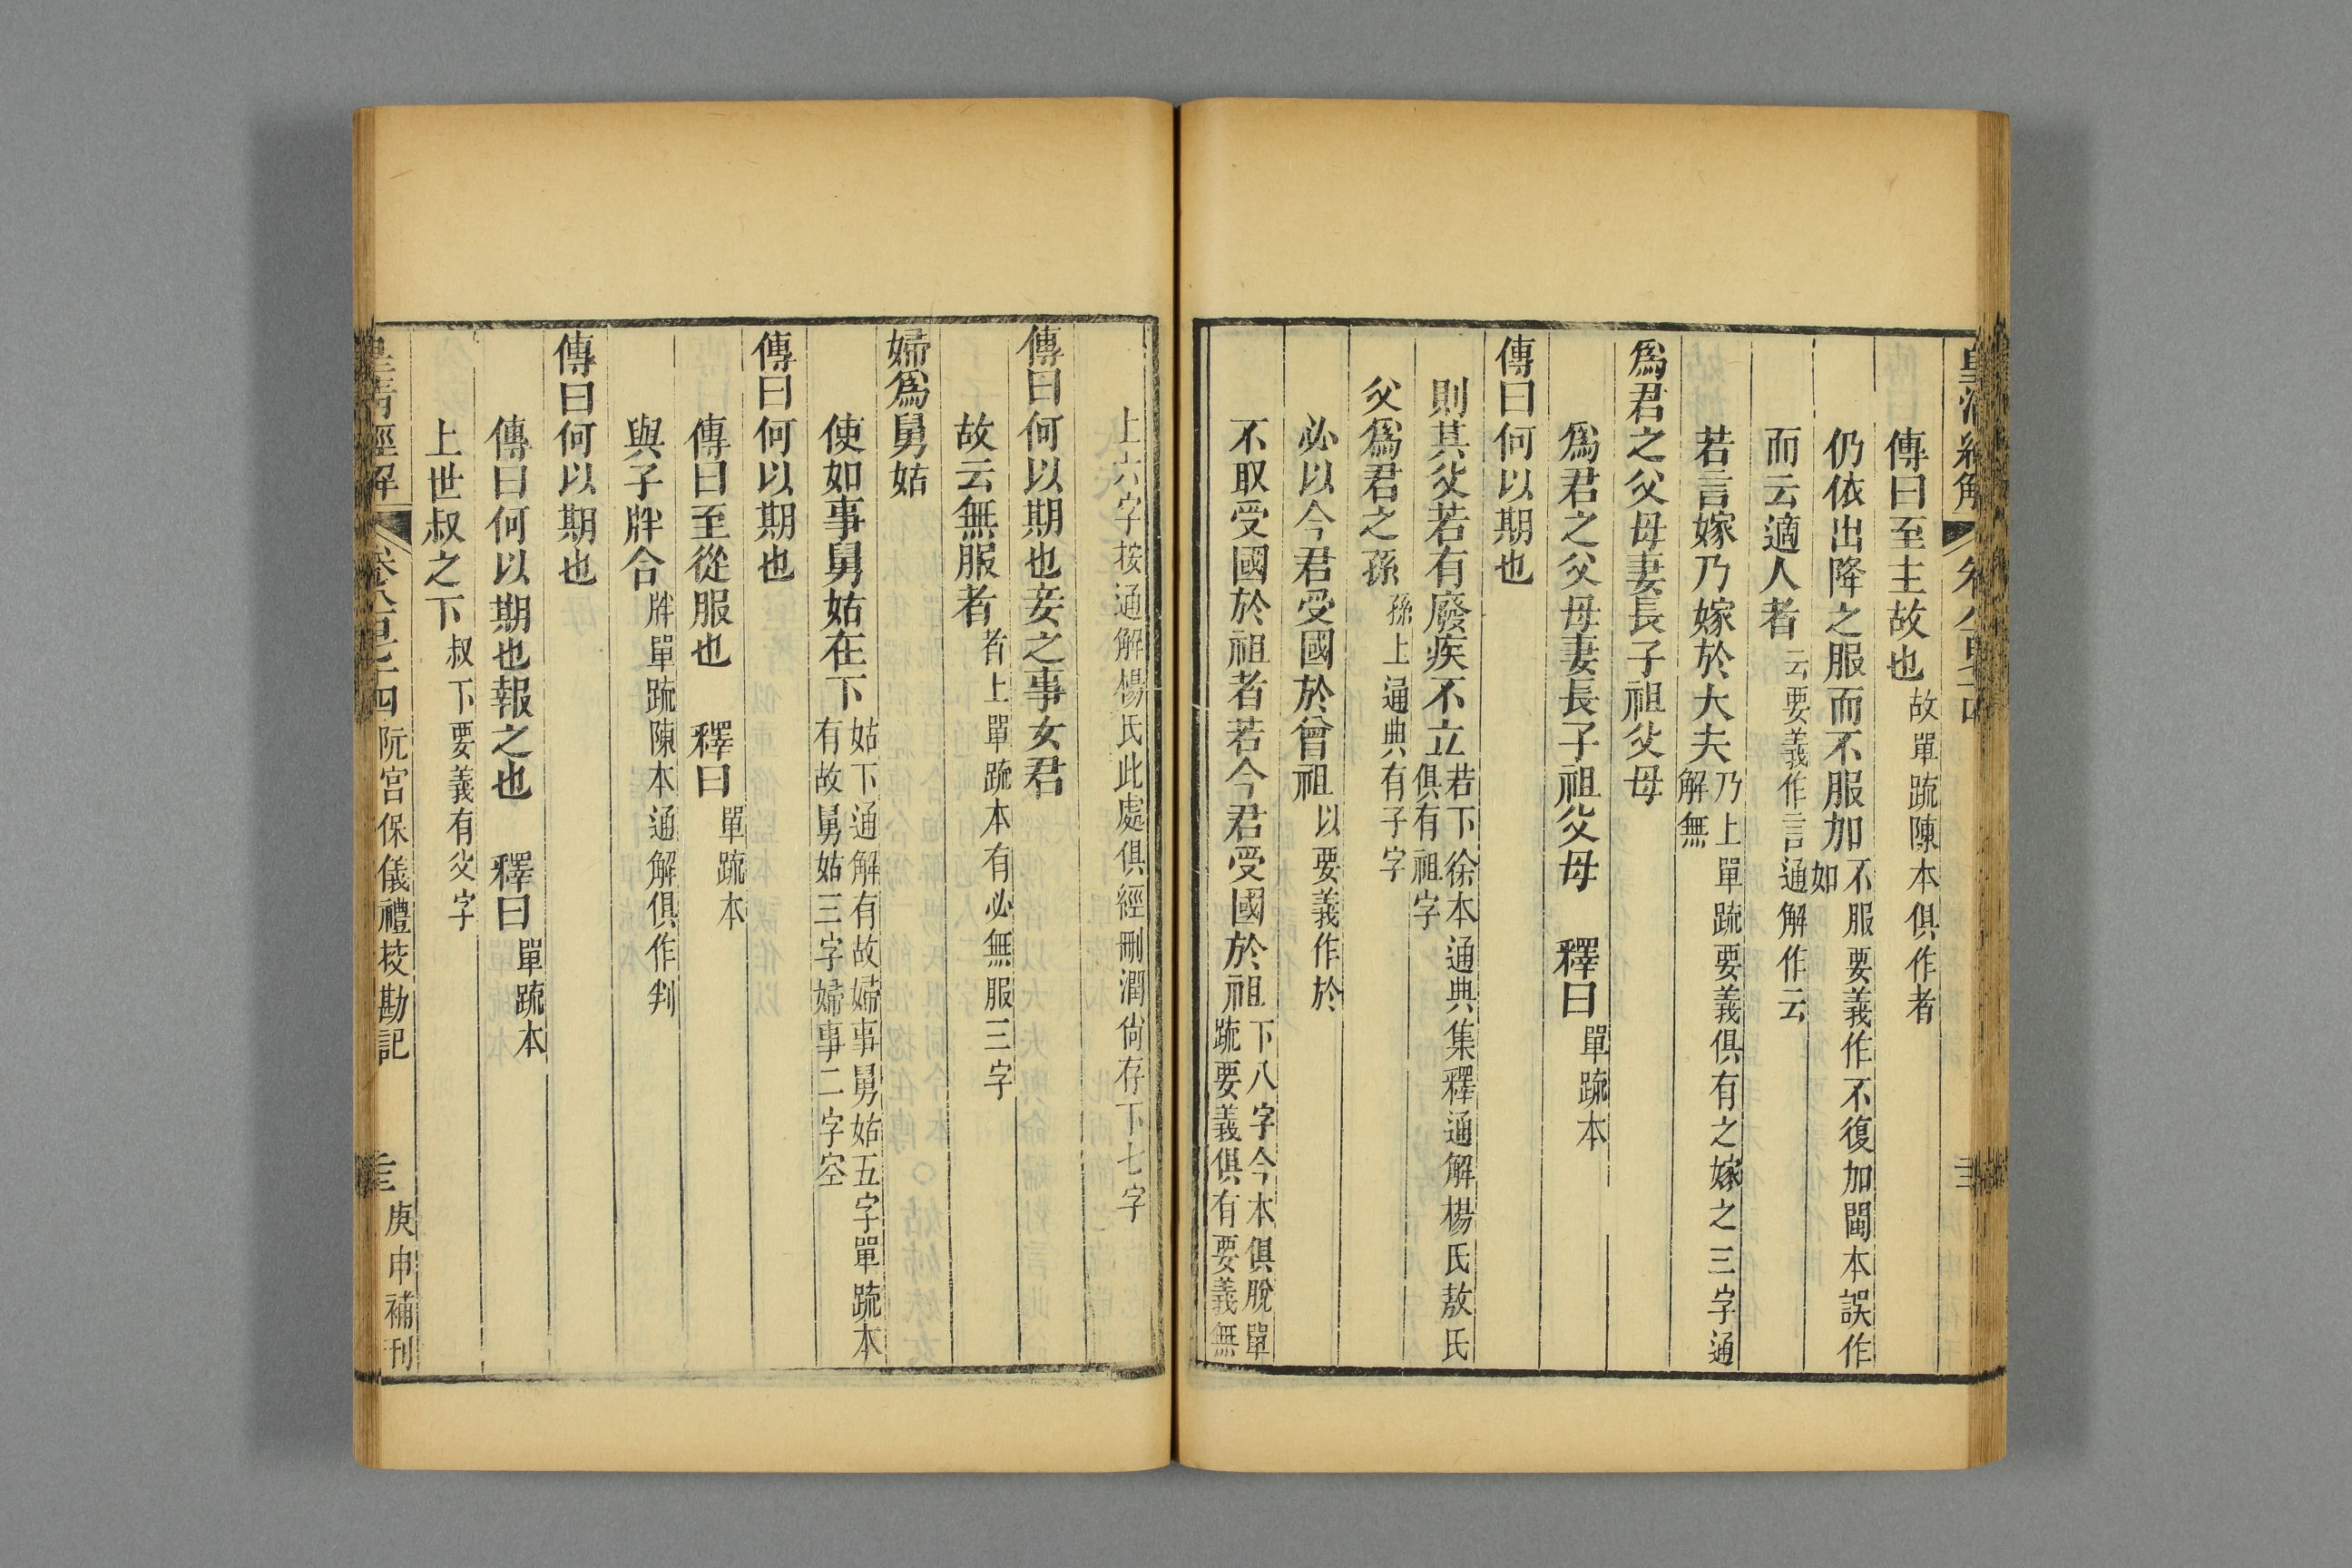 傳曰至主故也故單疏陳本俱作者
仍依出降之服而不服加不服要義作不復加閩本誤作如
而云適人者云要義作言通解作云
若言嫁乃嫁於大夫乃上單疏要義俱有之嫁之三字通解無
爲君之父母妻長子祖父母
爲君之父母妻長子祖父母　釋曰單疏本
傳曰何以期也
則其父若有廢疾不立若下徐本通典集釋通解楊氏敖氏俱有祖字
父爲君之孫孫上通典有子字
必以今君受國於曾祖以要義作於
不取受國於祖者若今君受國於祖下八字今本俱脫單疏要義俱有要義無
上六字按通解楊氏此處俱經刪潤尙存下七字
傳曰何以期也妾之事女君
故云無服者者上單疏本有必無服三字
婦爲舅姑
使如事舅姑在下姑下通解有故婦事舅姑五字單疏本有故舅姑三字婦事二字空
傳曰何以期也
傳曰至從服也　釋曰單疏本
與子牉合牉單疏陳本通解俱作判
傳曰何以期也
傳曰何以期也報之也　釋曰單疏本
上世叔之下叔下要義有父字
皇清經解　卷八百七十四　阮宮保儀禮校勘記　庚申補刊